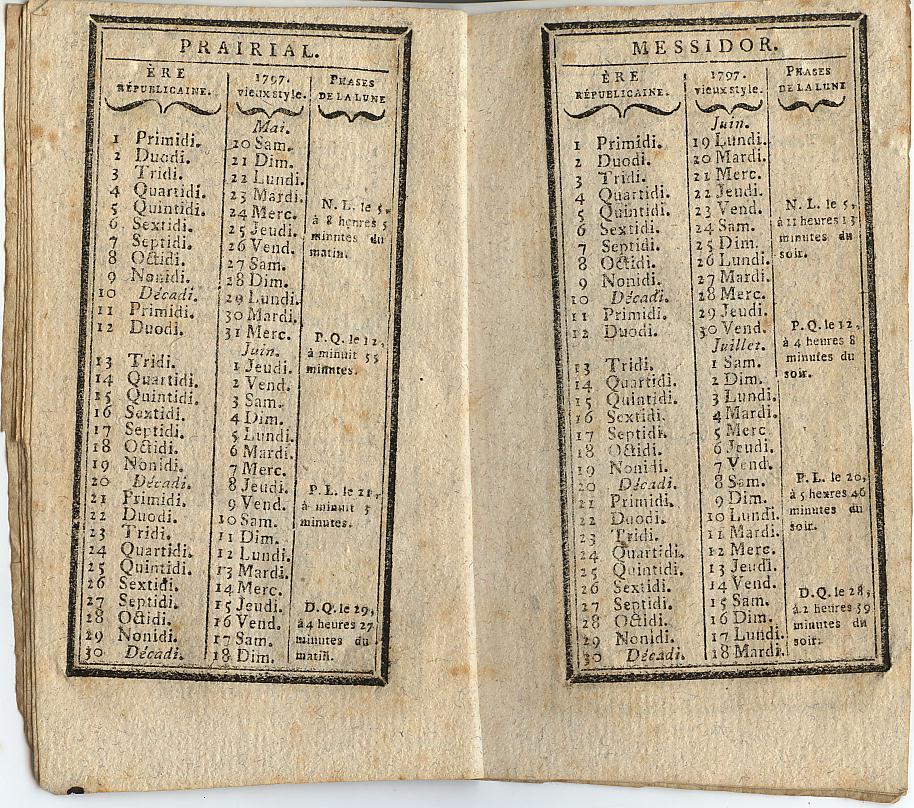 PRAIRIAL.
ÈRE RÉPUBLICAINE.
1797. vieux style.
PHASES DE LA LUNE
Mai.
1 Primidi. 20 Sam.
2 Duodi. 21 Dim.
3 Tridi. 22 Lundi.
4 Quartidi. 23 Mardi.
5 Quintidi. 24 Merc.
6 Sextidi. 25 Jeudi.
7 Septidi. 26 Vend.
8 Octidi. 27 Sam.
9 Nonidi. 28 Dim.
10 Décadi. 29 Lundi.
11 Primidi. 30 Mardi.
12 Duodi. 31 Merc.
Juin.
13 Tridi. 1 Jeudi.
14 Quartidi. 2 Vend.
15 Quintidi. 3 Sam.
16 Sextidi. 4 Dim.
17 Septidi. 5 Lundi.
18 Octidi. 6 Mardi.
19 Nonidi. 7 Merc.
20 Décadi. 8 Jeudi.
21 Primidi. 9 Vend.
22 Duodi. 10 Sam.
23 Tridi. 11 Dim.
24 Quartidi. 12 Lundi.
25 Quintidi. 13 Mardi.
26 Sextidi. 14 Merc.
27 Septidi. 15 Jeudi.
28 Octidi. 16 Vend.
29 Nonidi. 17 Sam.
30 Décadi. 18 Dim.
N. L. le 5,
à 8 heures 5
minutes du
matin.
P. Q. le 12,
à minuit 55
minutes.
P. L. le 21,
à minuit 5
minutes.
D. Q. le 29,
à 4 heures 27
minutes du
matin.
MESSIDOR.
ÈRE RÉPUBLICAINE.
1797. vieux style.
PHASES DE LA LUNE
Juin.
1 Primidi. 19 Lundi.
2 Duodi. 20 Mardi.
3 Tridi. 21 Merc.
4 Quartidi. 22 Jeudi.
5 Quintidi. 23 Vend.
6 Sextidi. 24 Sam.
7 Septidi. 25 Dim.
8 Octidi. 26 Lundi.
9 Nonidi. 27 Mardi.
10 Décadi. 28 Merc.
11 Primidi. 29 Jeudi.
12 Duodi. 30 Vend.
Juillet.
13 Tridi. 1 Sam.
14 Quartidi. 2 Dim.
15 Quintidi. 3 Lundi.
16 Sextidi. 4 Mardi.
17 Septidi. 5 Merc
18 Octidi. 6 Jeudi.
19 Nonidi. 7 Vend.
20 Décadi. 8 Sam.
21 Primidi. 9 Dim.
22 Duodi. 10 Lundi.
23 Tridi. 11 Mardi.
24 Quartidi. 12 Merc.
25 Quintidi. 13 Jeudi.
26 Sextidi. 14 Vend.
27 Septidi. 15 Sam.
28 Octidi. 16 Dim.
29 Nonidi. 17 Lundi.
30 Décadi. 18 Mardi.
N. L. le 5,
à 11 heures 13
minutes du
soir.
P. Q. le 12,
à 4 heures 8
minutes du
soir.
P. L. le 20,
à 5 heures 46
minutes du
soir.
D. Q. le 28,
à 2 heures 39
minutes du
soir.